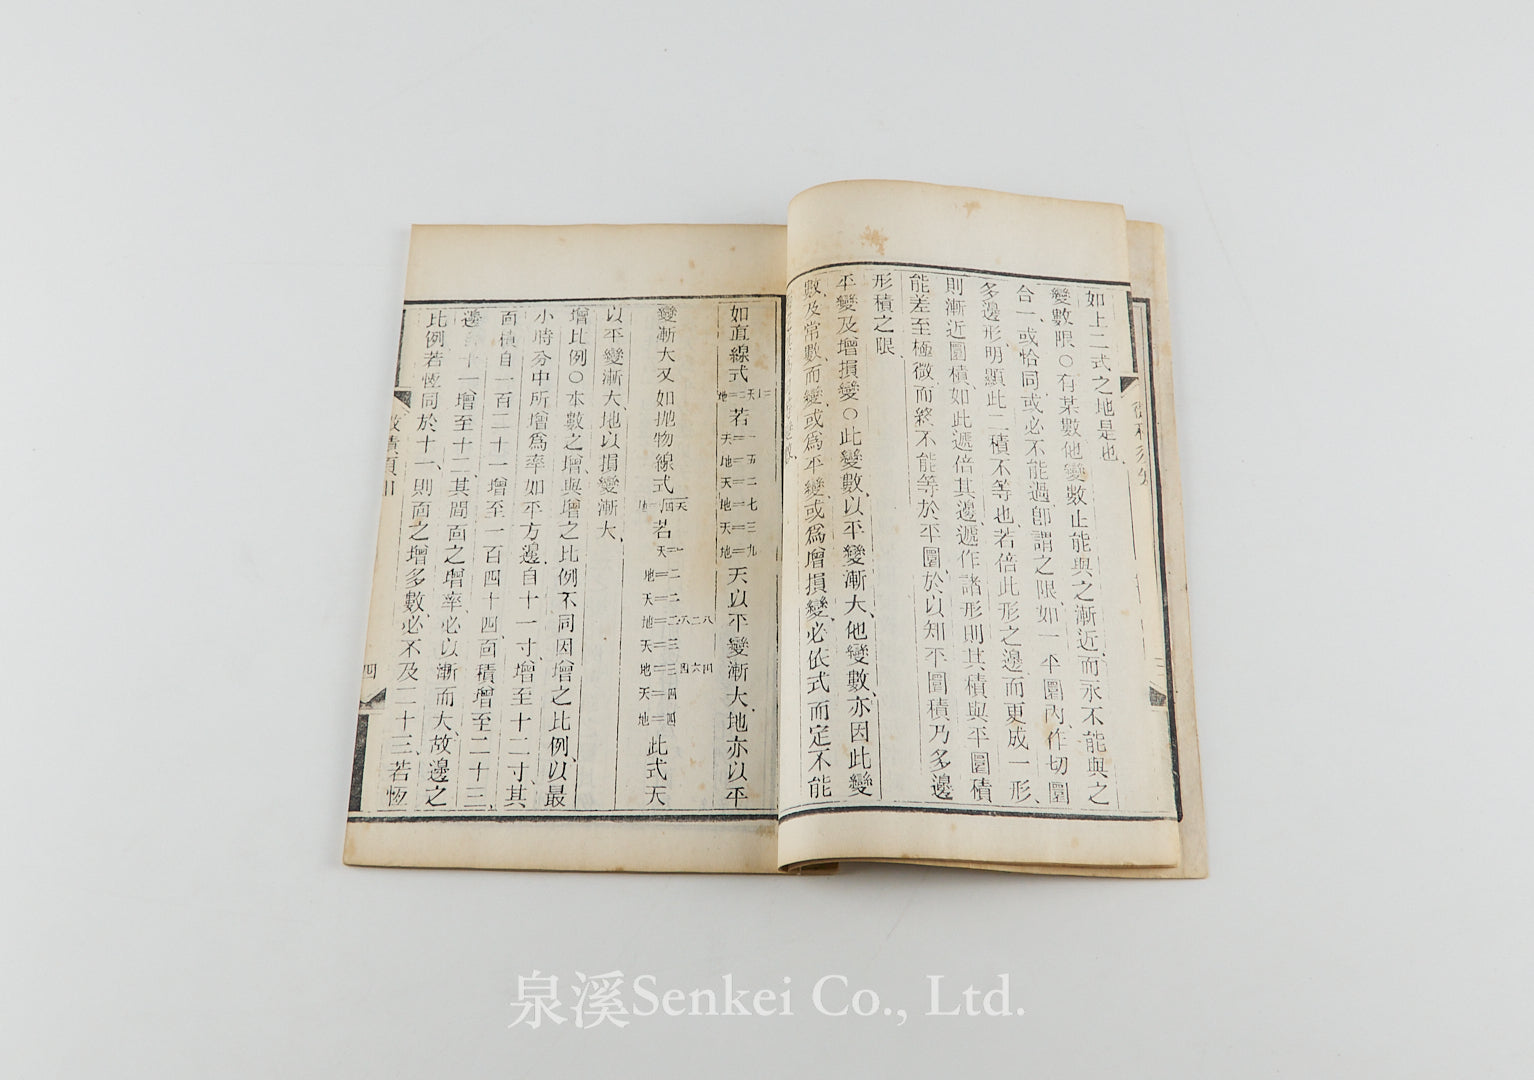 如上二式之地是也、
變數限○有某數他變數止能與之漸近、而永不能與之
合一、或恰同、或必不能過、卽謂之限、如一平圜內、作切圜
多邊形、明顯此二積不等也、若倍此形之邊、而更成一形、
則漸近圜積、如此遞倍其邊、遞作諸形、則其積與平圜積
能差至極微、而終不能等於平圜、於以知平圜積、乃多邊
形積之限、
平變及增損變○此變數、以平變漸大、他變數、亦因此變
數、及常數、而變、或爲平變、或爲增損變、必依式而定、不能
如直線式 若
天=一
地=五
天=二
地=七
天=三
地=九
天以平變漸大、地亦以平
變漸大又如抛物線式 若
天=一
地=二
天=二
地=二八二八
天=三
地=三四六四
天=四
地=四
此式天
以平變漸大、地以損變漸大、
增比例○本數之增、與增之比例不同、因增之比例、以最
小時分中所增爲率、如平方邊、自十一寸、增至十二寸、其
面積自一百二十一、增至一百四十四、面積增至二十三、
邊自十一增至十二、其間面之增率、必以漸而大、故邊之
比例、若恆同於十一、則面之增多數、必不及二十三、若恆
四